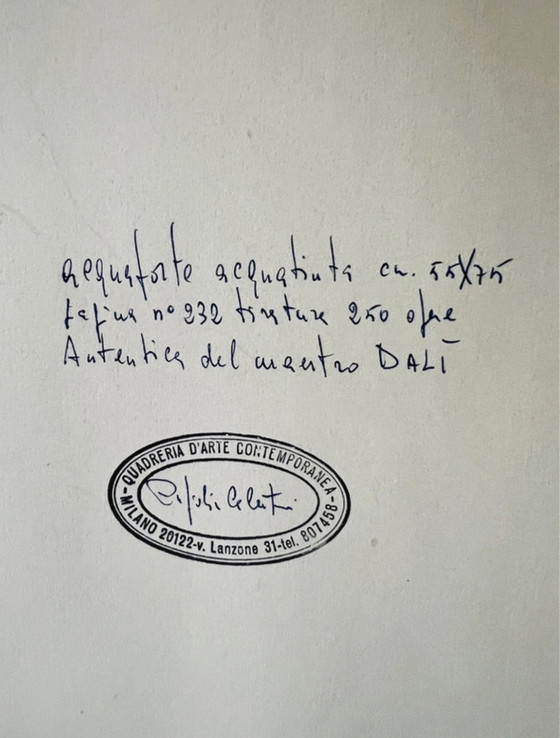 acquaforte acquatinta cm. 55X75
n° 232 tiratura 250
Autentica del maestro DALI
QUADRERIA D'ARTE CONTEMPORANEA
MILANO 20122-v. Lanzone 31-tel. 807458